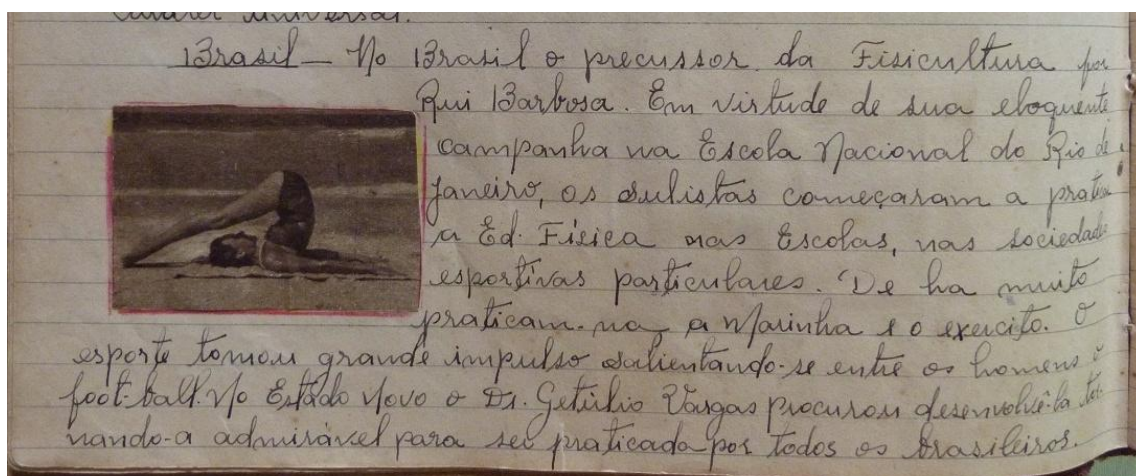 carater universal.
Brasil — No Brasil o precussor da Fisicultura foi
Rui Barbosa. Em virtude de sua eloquente
campanha na Escola Nacional do Rio de
Janeiro, os sulistas começaram a pratica
a Ed. Física nas Escolas, nas sociedade
esportivas particulares. De ha muito
praticam-na a Marinha e o exercito. O
esporte tomou grande impulso salientando-se entre os homens o
foot-ball. No Estado Novo o Dr. Getúlio Vargas procurou desenvolvê-la tor
nando-a admirável para ser praticada por todos os brasileiros.